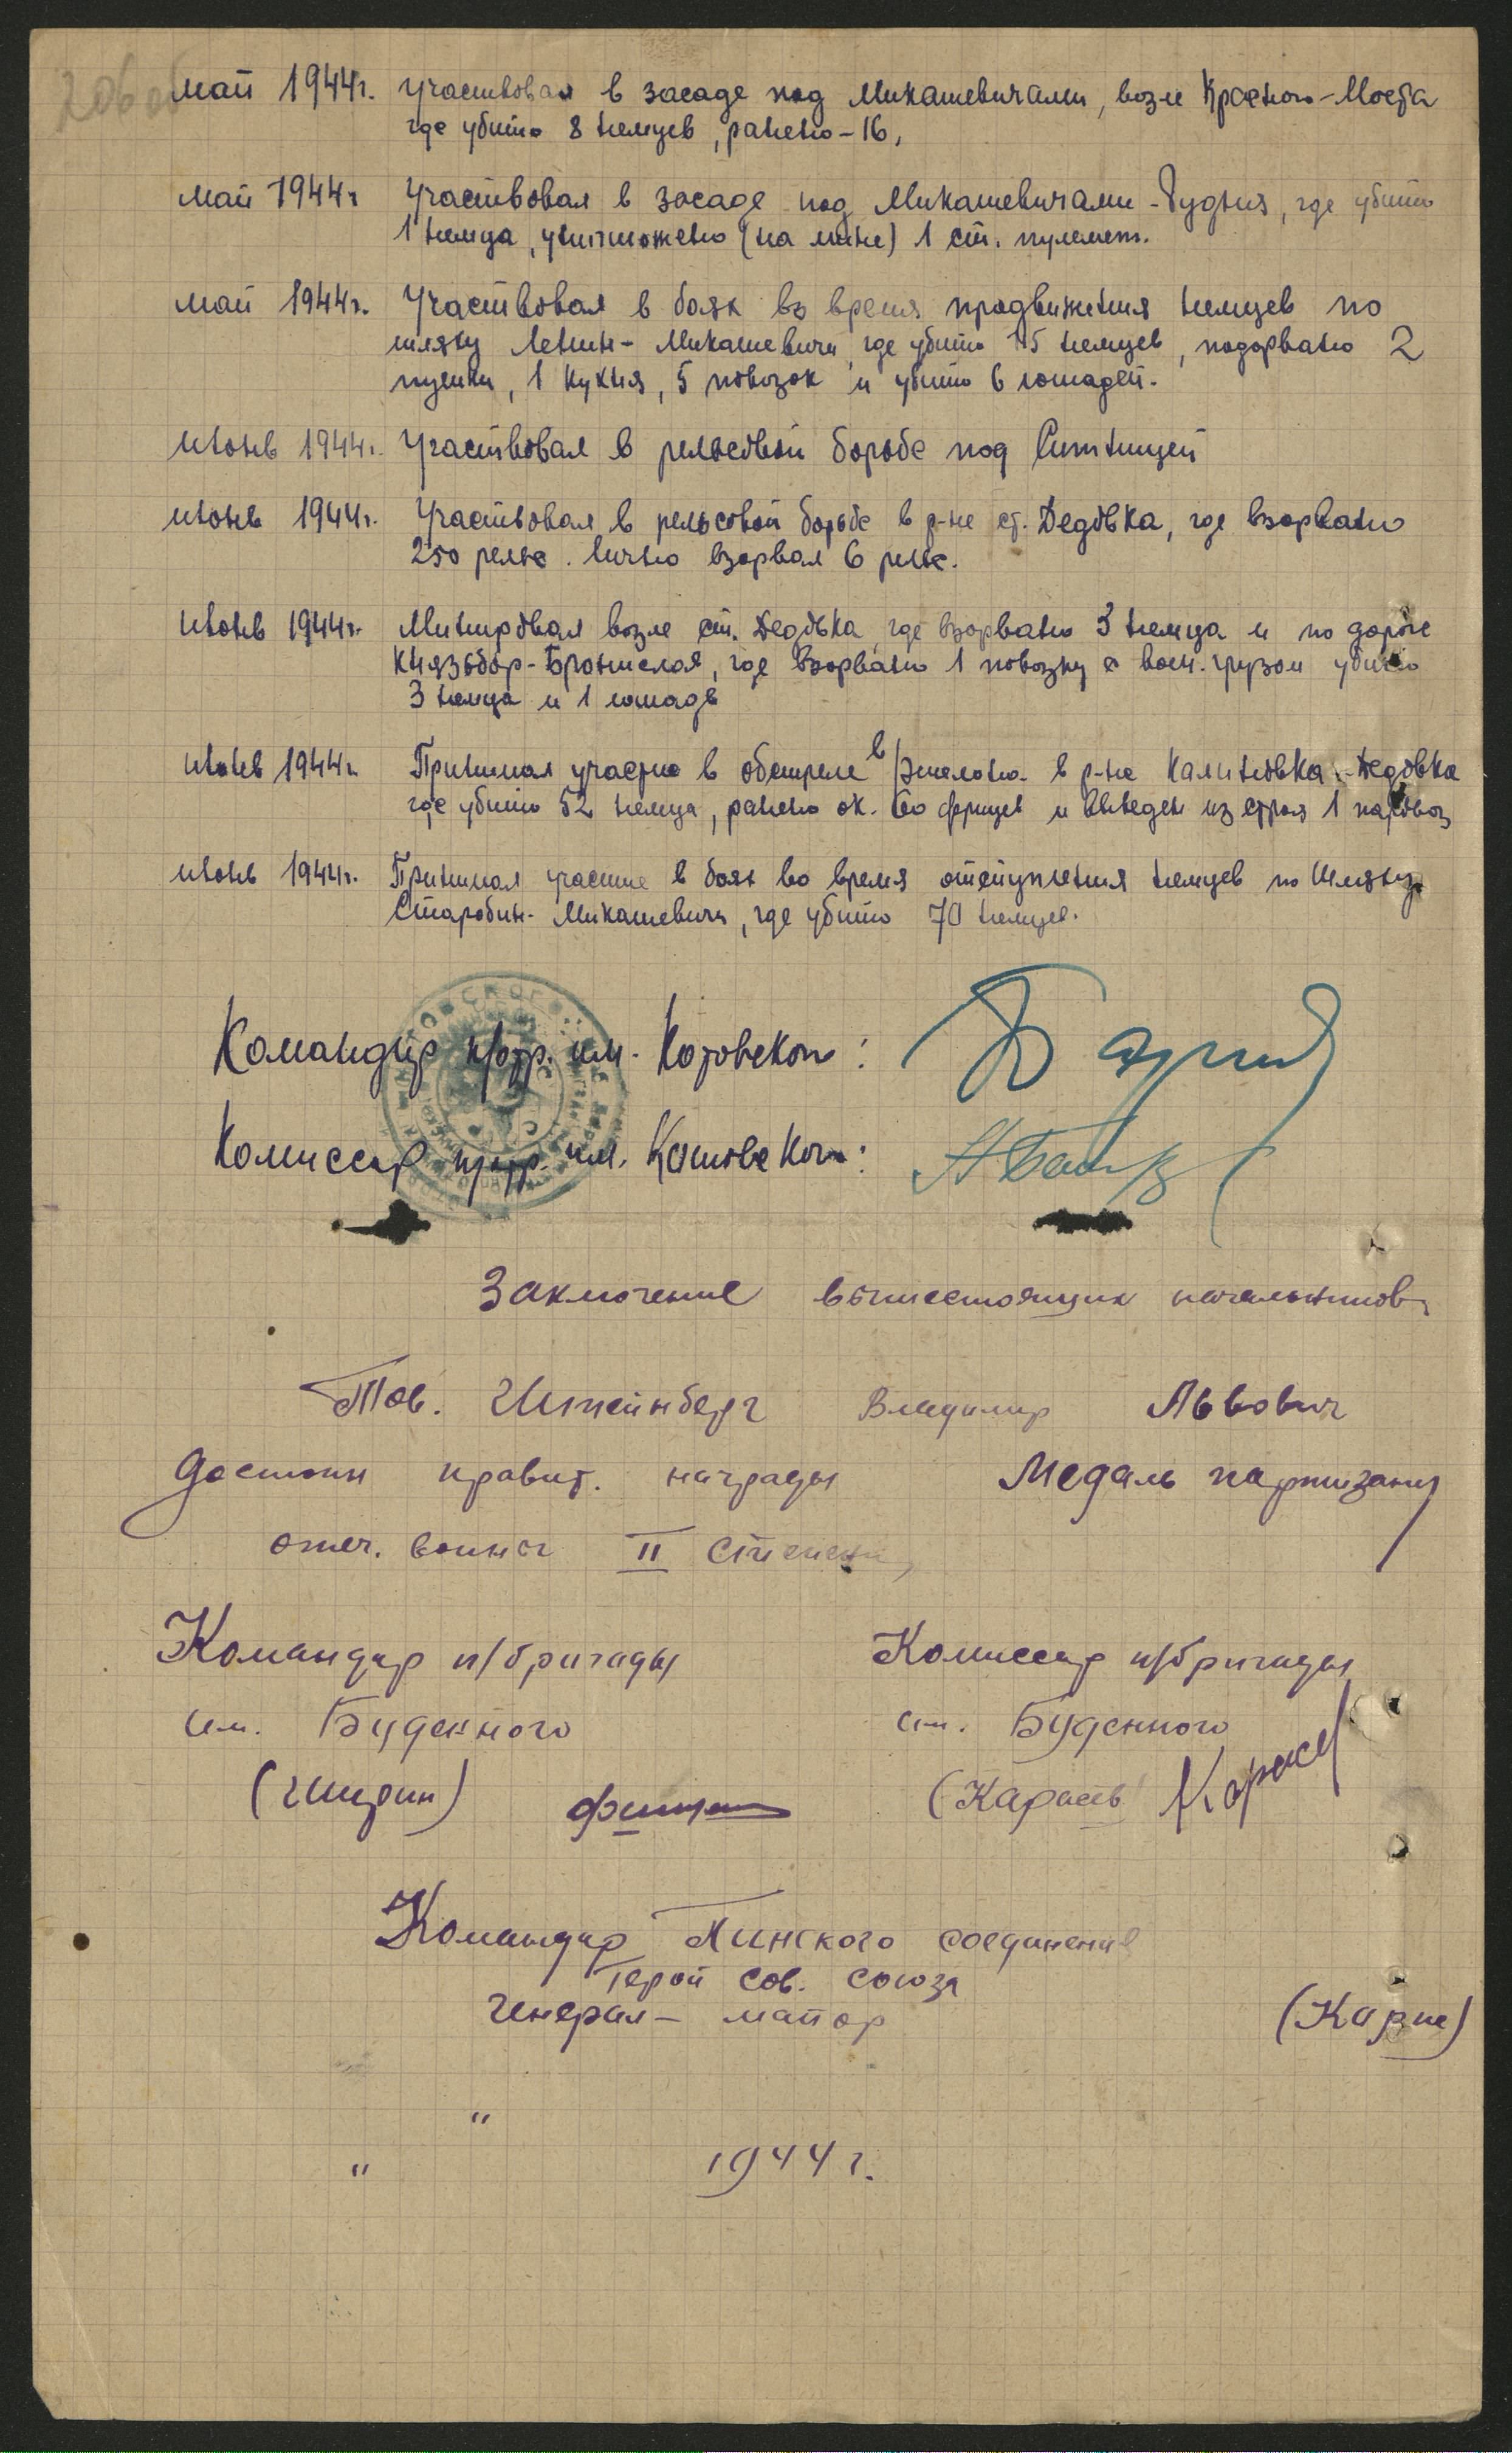 206 об
май 1944г. Участвовал в засаде под Микашевичами, возле Красного-Моста
где убито 8 немцев, ранено-16,
май 1944г Участвовал в засаде под Микашевичами-Рудня, где убито
1 немца, уничтожено (на мине) 1 ст. пулемет.
май 1944г. Участвовал в боях во время продвижения немцев по
шляху Ленин-Микашевичи где убито 15 немцев, подорвано 2
пушки, 1 кухня, 5 повозок и убито 6 лошадей.
июнь 1944г. Участвовал в рельсовой борьбе под Ситницей
июнь 1944г. Участвовал в рельсовой борьбе в р-не ст. Дедовка, где взорвано
250 рельс. Лично взорвал 6 рельс.
июнь 1944г. Минировал возле ст. Дедовка, где взорвано 3 немца и по дороге
Князьбор-Бронислав, где взорвано 1 повозку с воен. грузом убито
3 немца и 1 лошадь
июнь 1944г. Принимал участие в обстреле в/эшелона в р-не Калиновка-Дедовка
где убито 52 немца, ранено ок. 60 фрицев и выведен из строя 1 паровоз
июнь 1944г. Принимал участие в боях во время отступления немцев по шляху
Старобин-Микашевичи, где убито 70 немцев.
Командир п/отр. им. Котовского:
Комиссар п/отр. им. Котовского:
Заключение вышестоящих начальников
Тов. Штейнберг Владимир Львович
достоин правит. награды Медаль партизану
отеч. войны II степени,
Командир п/бригады Комиссар п/бригады
им. Буденного им. Буденного
(Ширин) (Карасев)
Командир Пинского соединения
Герой Сов. Союза
Генерал-майор (Корж)
"
" 1944г.